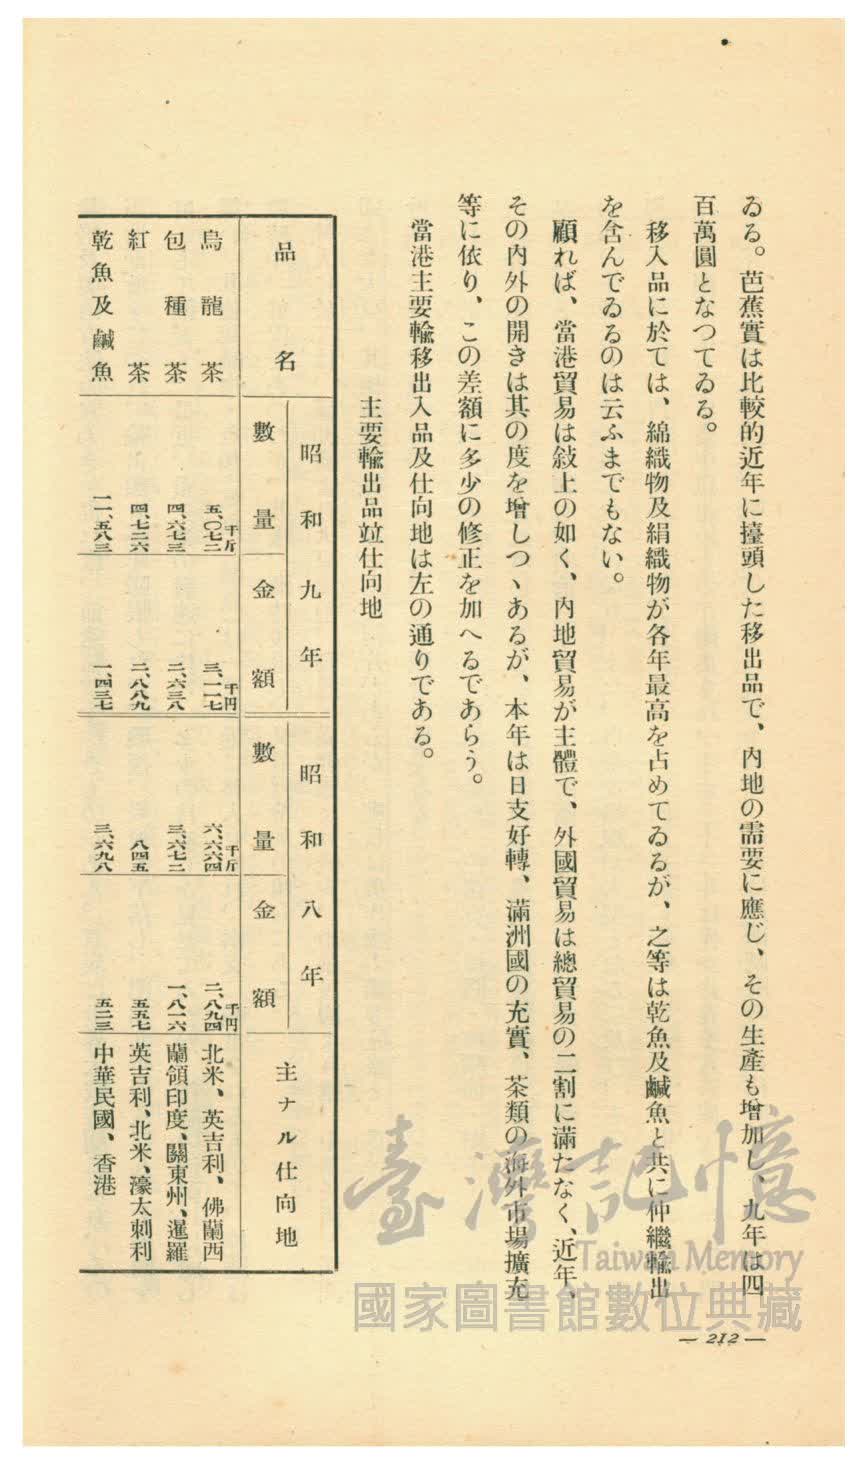 ゐる。芭蕉實は比較的近年に擡頭した移出品で、內地の需要に應じ、その生產も增加し、九年は四
百萬圓となつてゐる。
移入品に於ては、綿織物及絹織物が各年最高を占めてゐるが、之等は乾魚及鹹魚と共に仲繼輸出
を含んでゐるのは云ふまでもない。
顧れば、當港貿易は敍上の如く、內地貿易が主體で、外國貿易は總貿易の二割に滿たなく、近年、
その內外の開きは其の度を增しつゝあるが、本年は日支好轉、滿洲國の充實、茶類の海外市場擴充
等に依り、この差額に多少の修正を加へるであらう。
當港主要輸移出入品及仕向地は左の通りである。
主要輸出品竝仕向地
品名
昭和九年
昭和八年
主ナル仕向地
數量
金額
數量
金額
烏龍茶 千斤 五、〇七二 千円 三、一一七 千斤 六、六六四 千円 二、八九四 北米、英吉利、佛蘭西
包種茶 四、六七三 二、六三八 三、六七二 一、八一六 蘭領印度、關東州、暹羅
紅茶 四、七二六 二、八八九 八四五 五五七 英吉利、北米、濠太剌利
乾魚及鹹魚 一一、五八三 一、四三七 三、六九八 五二三 中華民國、香港
臺灣記憶
Taiwan Memory
國家圖書館數位典藏
— 212 —